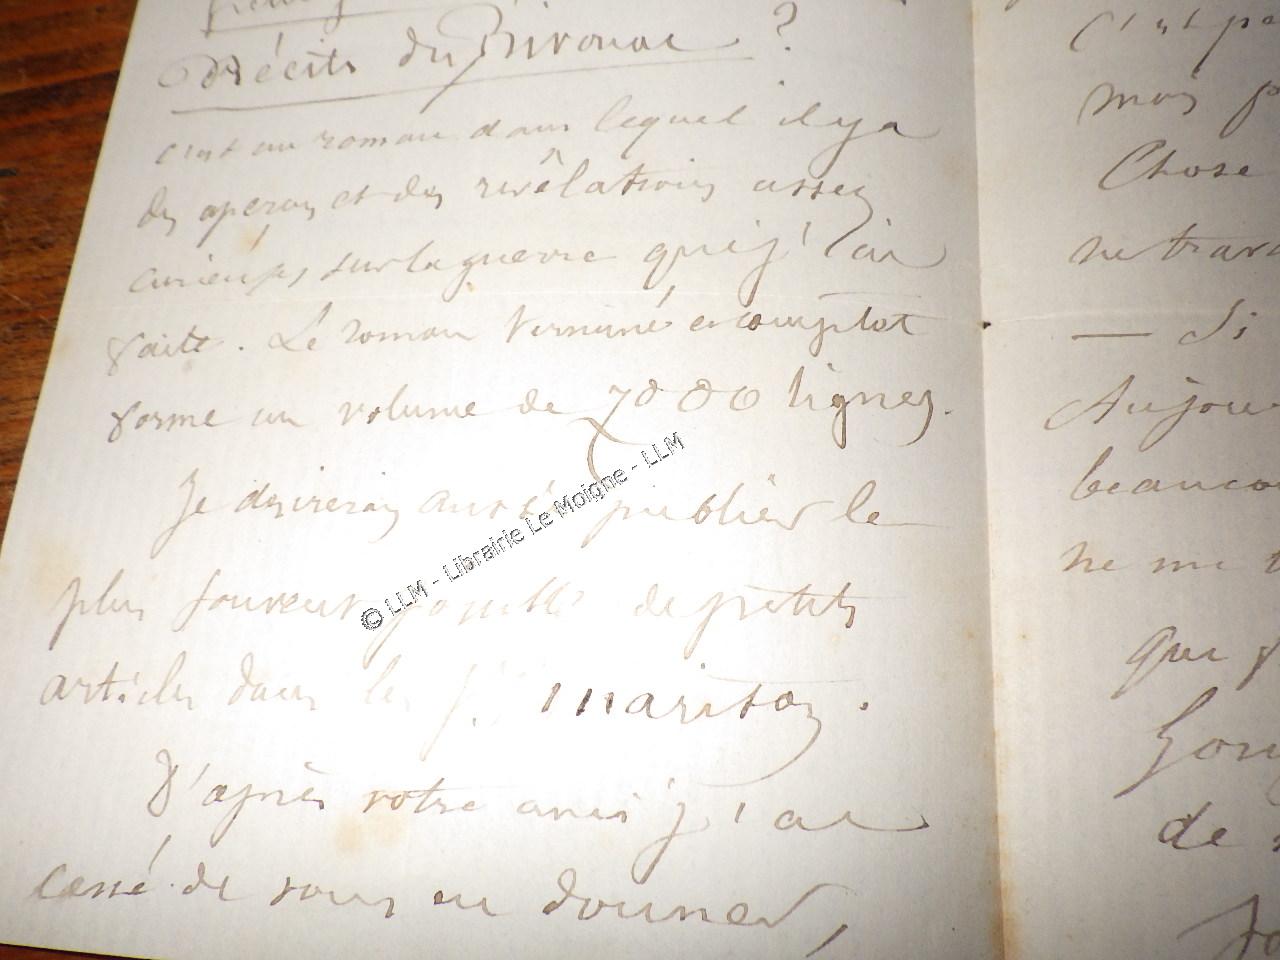 Récits du Bivouac ?
c'est un roman dans lequel il y a
des aperçus et des révélations assez
curieuses sur la guerre que j'ai
faite. Le roman terminé et complet
forme un volume de 7000 lignes.
Je desirerais aussi publier le
plus souvent possible de petits
articles dans le
D'après votre avis j'ai
cessé de vous en donner,
c'est pa
mais p
Chose
ne trav
— Si
Aujour
beauco
ne me t
que f
de
© LLM - Librairie Le Moigne - LLM